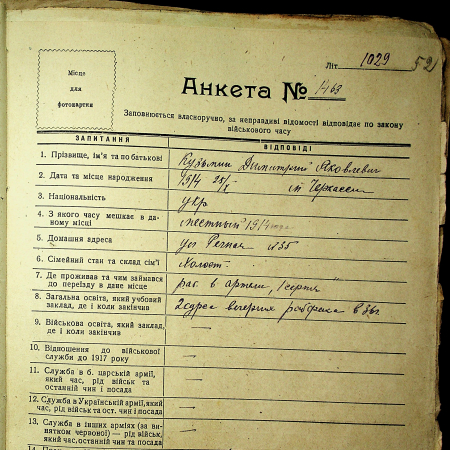 Літ. 1029 52
Місце
для
фотокартки
Анкета № 1463
Заповнюється власноручно, за неправдиві відомості відповідає по закону
військового часу
ЗАПИТАННЯ ВІДПОВІДІ
1. Прізвище, ім'я та по батькові Кузьмин Димитрий Яковлевич
2. Дата та місце народження 1914 25/I м Черкассы
3. Національність укр
4. З якого часу мешкає в да-
ному місці местный 1914
5. Домашня адреса ул Речная №35
6. Сімейний стан та склад сім'ї Холост -
7. Де проживав та чим займався
до переїзду в дане місце раб. в артели,
8. Загальна освіта, який учбовий
заклад, де і коли закінчив 2 курса вечерняя рабфака в
9. Військова освіта, який заклад,
де і коли закінчив —
10. Відношення до військової
служби до 1917 року —
11. Служба в б. царській армії,
який час, рід військ та
останній чин і посада —
12. Служба в Українській армії, який
час, рід військ та ост. чин і посада —
13. Служба в інших арміях (за ви-
нятком червоної) — рід військ,
який час, останній чин та посада —
14.